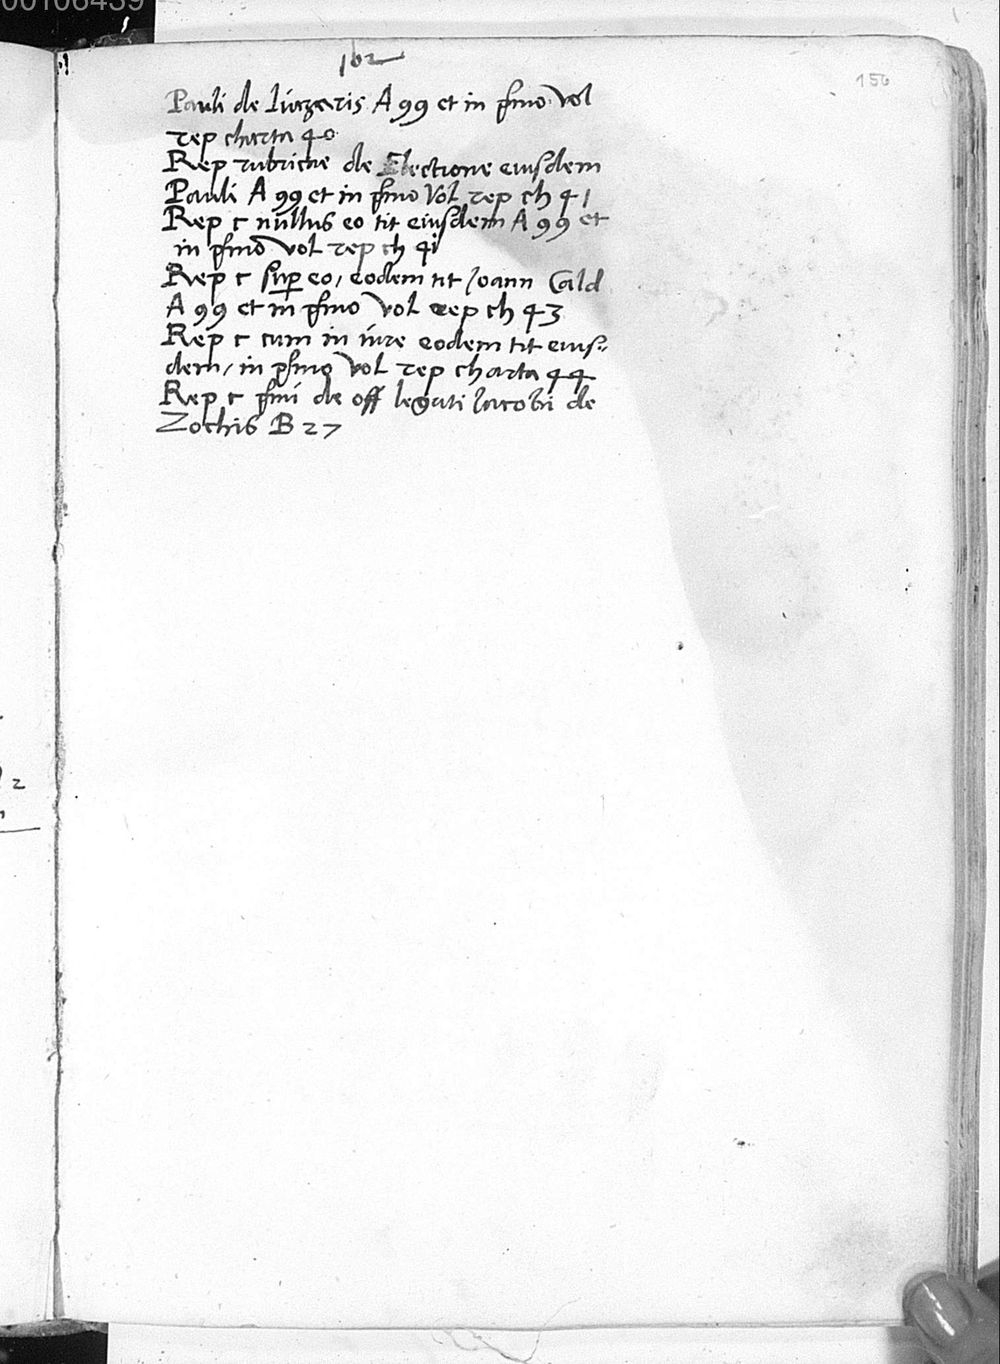 00106439
162
156
Pauli de Liazaris A 99 et in p̄mo vol
rep charta 40
Rep rubricae de Electione eiusdem
Pauli A 99 et in p̄mo Vol rep ch 41
Rep c nullus eo tit eiusdem A 99 et
in p̄mo vol rep ch 41
Rep c sup eo, eodem tit Joann Cald
A 99 et in p̄mo vol rep ch 43
Rep c cum in iure eodem tit eius:
dem, in p̄mo vol rep charta 44
Rep c de off legati Jacobi de
Zochis B 27
2